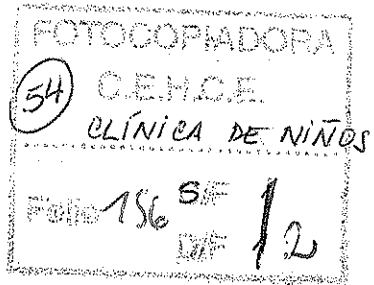 FOTOCOPIADORA
54 C.E.H.C.E.
CLÍNICA DE NIÑOS
Folio 156 S/F
D/F 12